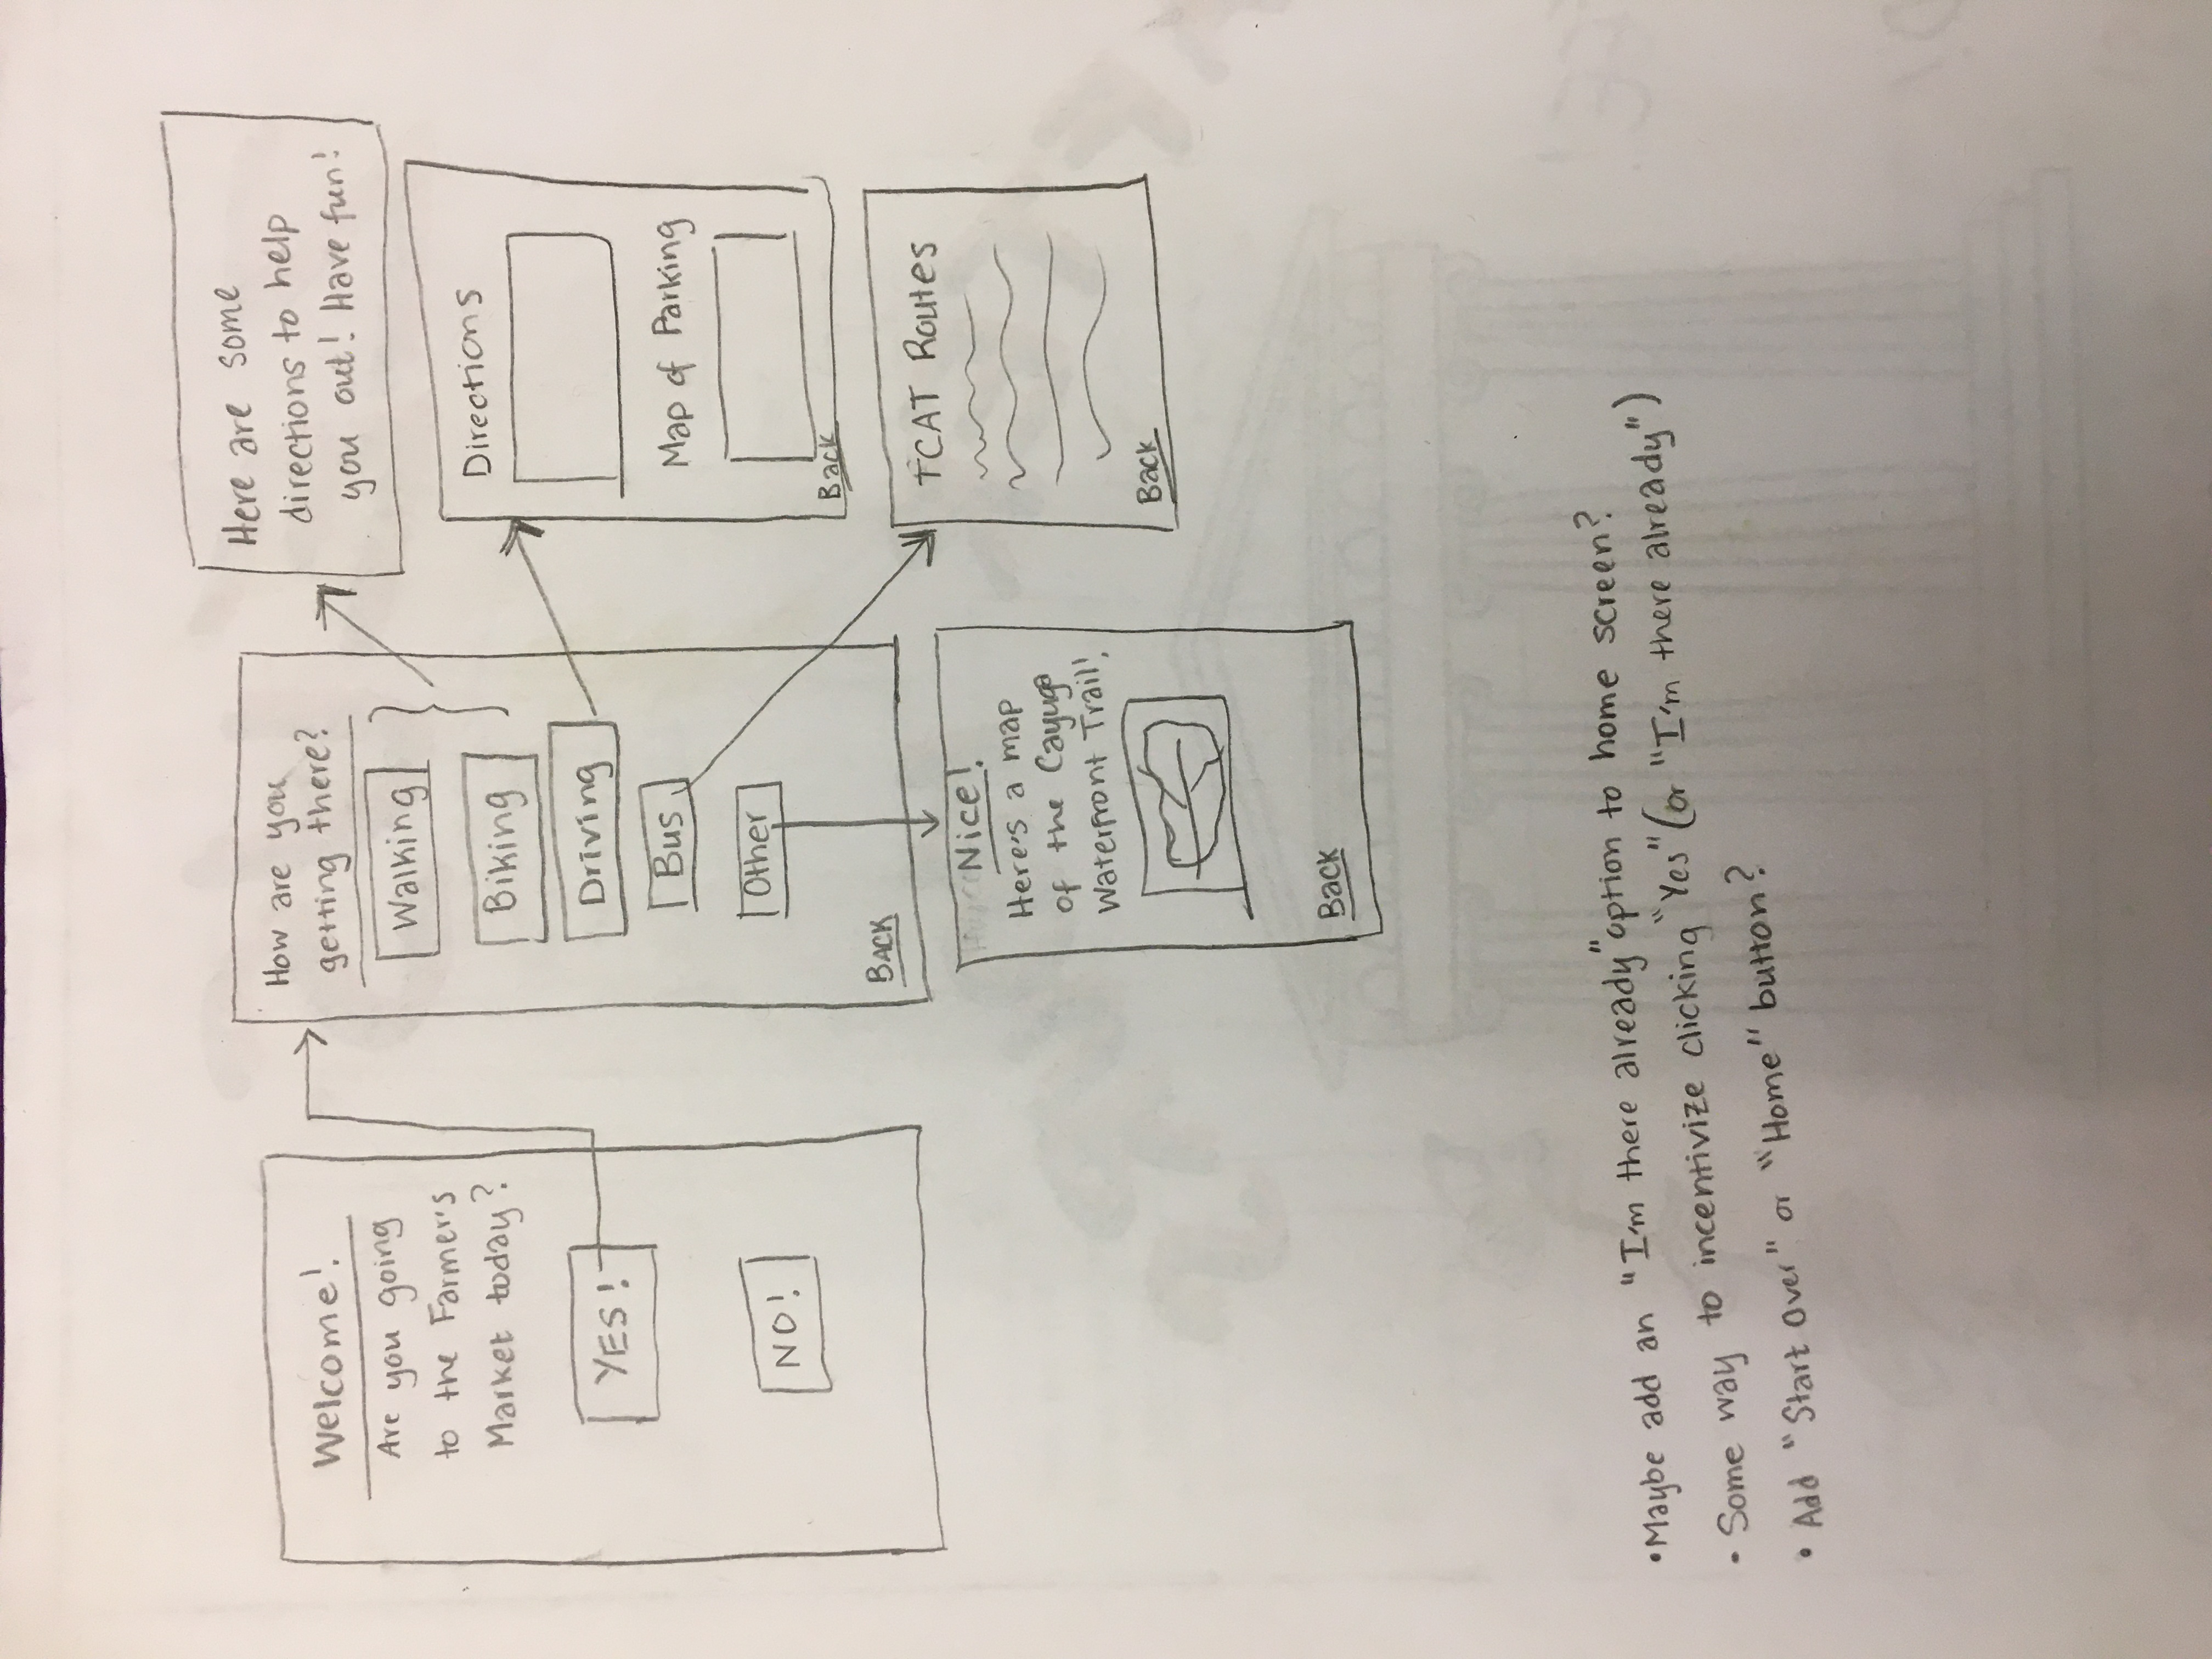 Welcome!
Are you going
to the Farmer's
Market today?
YES!
NO!
How are you
getting there?
Walking
Biking
Driving
Bus
Other
BACK
Here are some
directions to help
you out! Have fun!
Directions
Map of Parking
Back
TCAT Routes
Back
Nice!
Here's a map
of the Cayuga
Waterfront Trail!
Back
•Maybe add an "I'm there already" option to home screen?
• Some way to incentivize clicking "Yes" (or "I'm there already")
• Add "Start Over" or "Home" button?